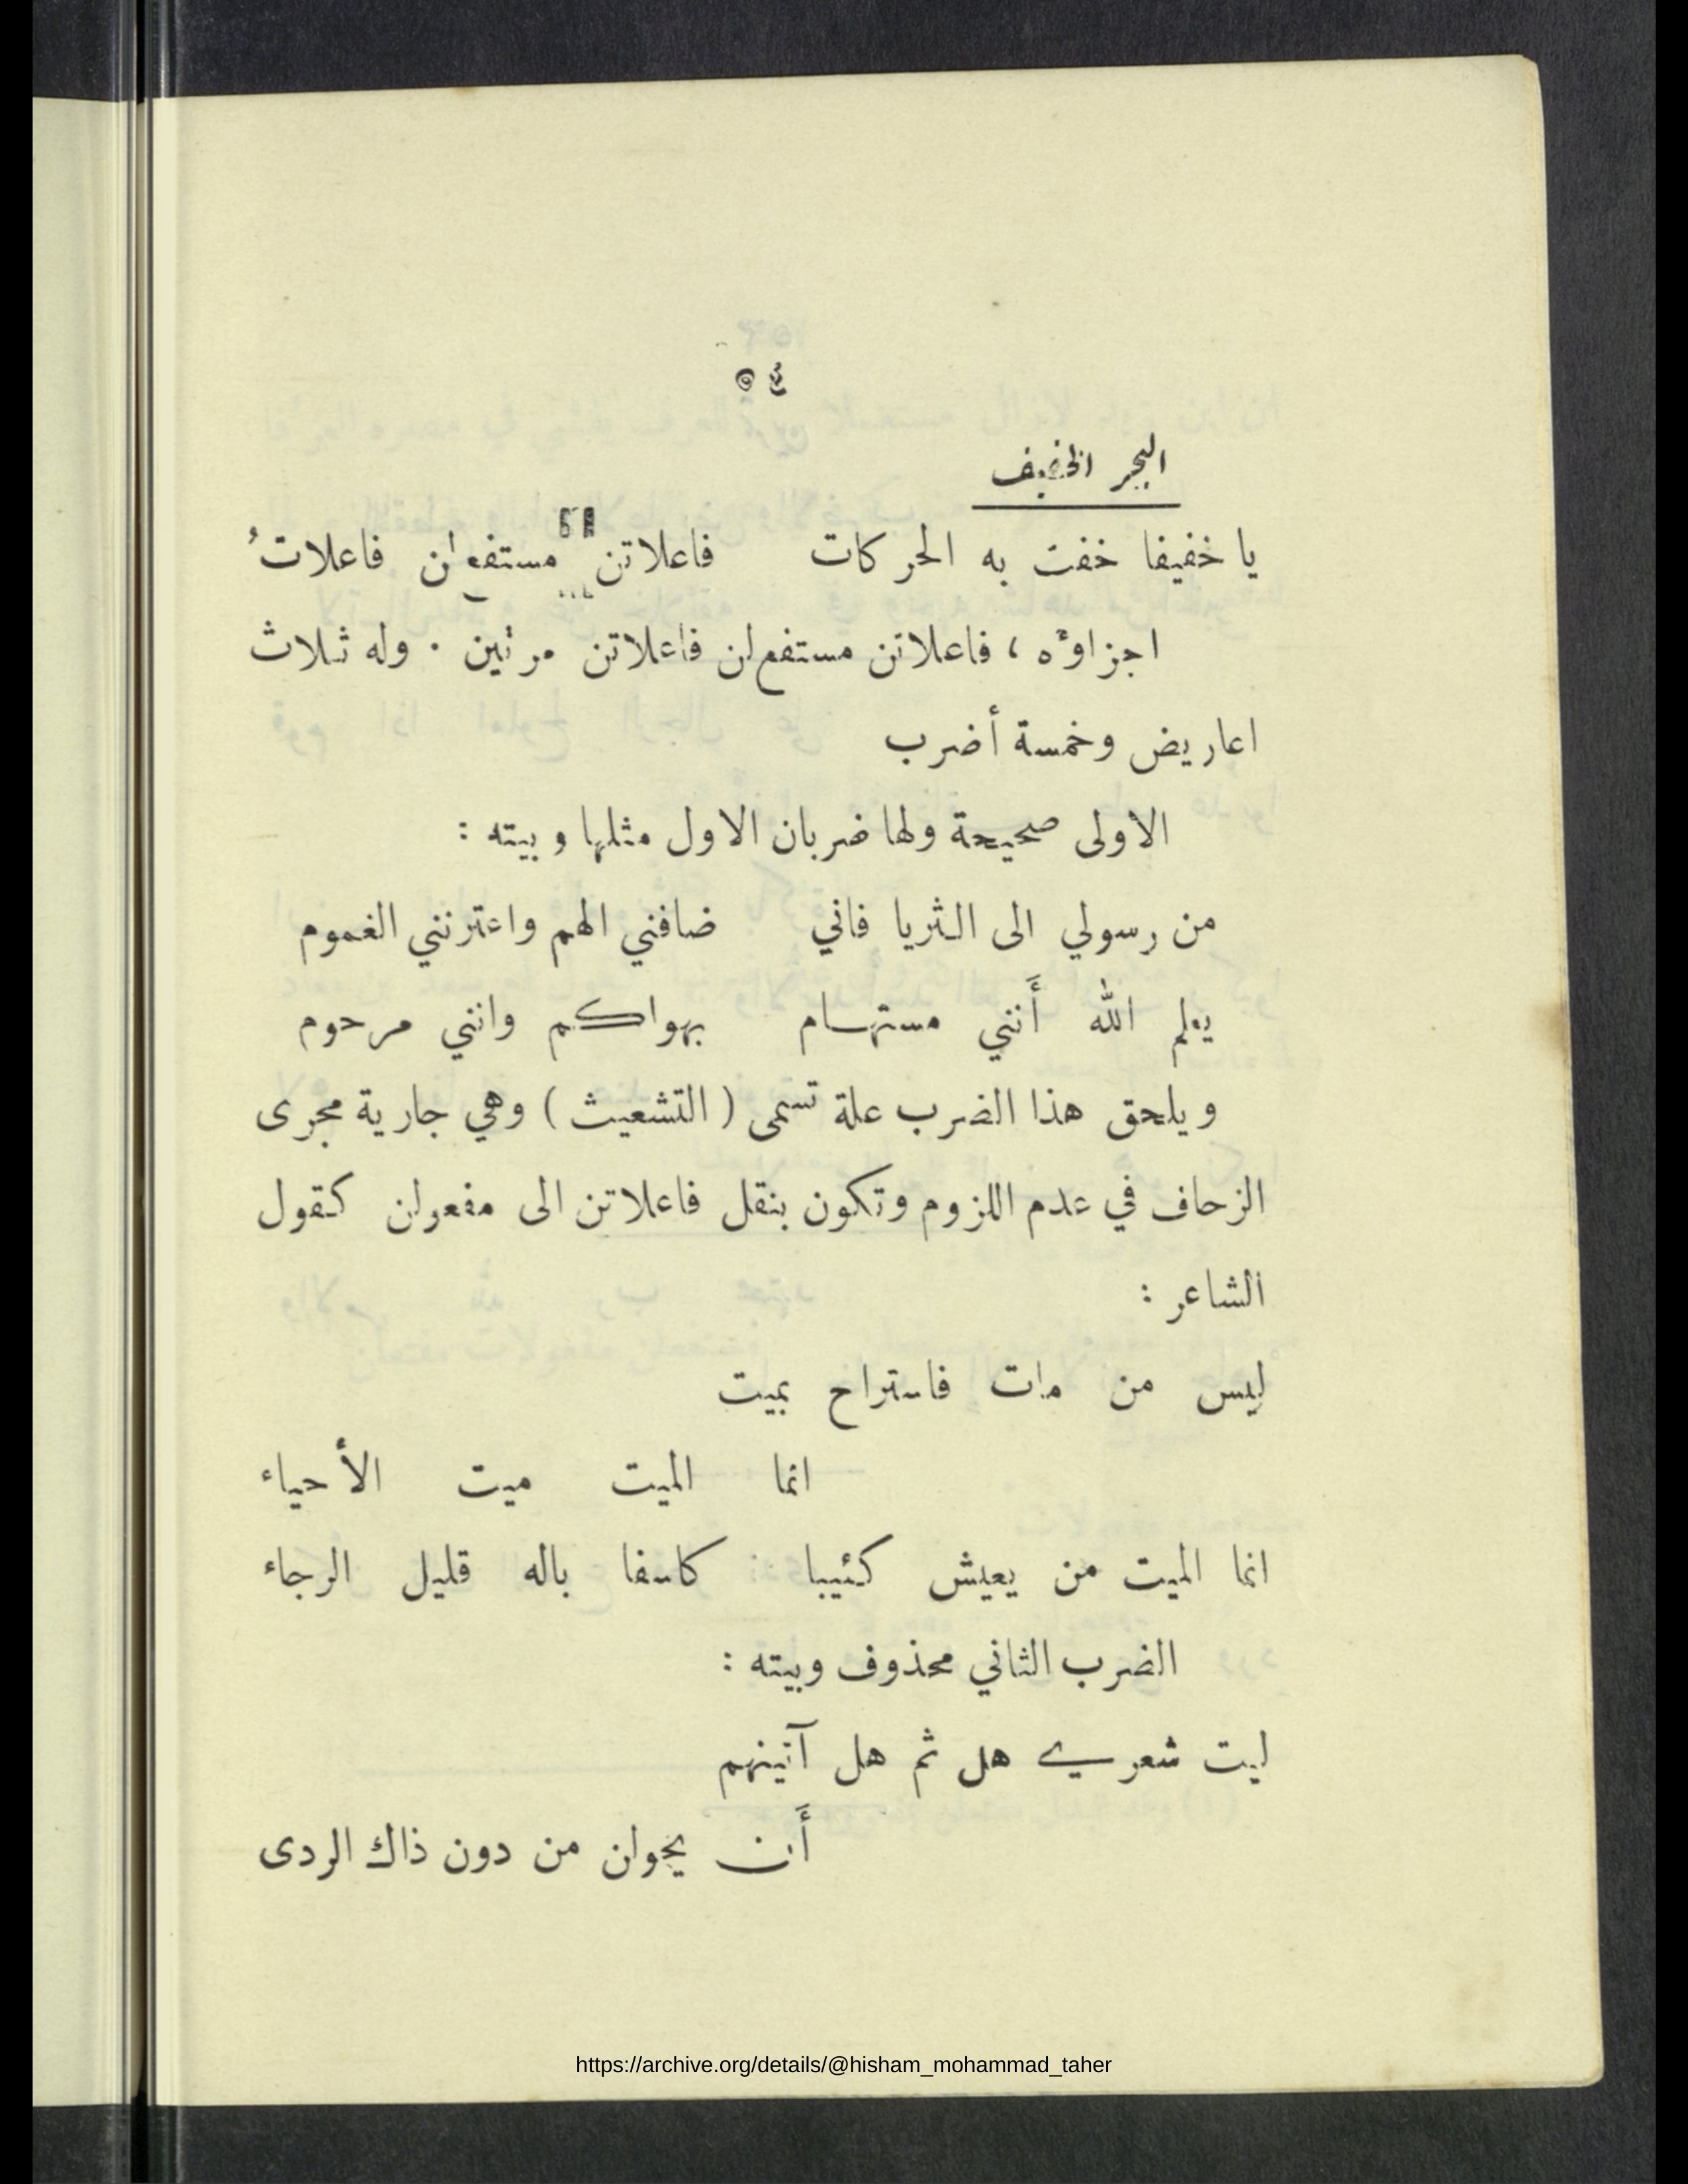 ٥٤
البحر الخفيف
يا خفيفا خفت به الحركات فاعلاتن مستفع لن فاعلاتُ
اجزاؤه ، فاعلاتن مستفع لن فاعلاتن مرتين . وله ثلاث
اعاريض وخمسة أضرب
الاولى صحيحة ولها ضربان الاول مثلها وبيته :
من رسولي الى الثريا فاني ضافني الهم واعترتني الغموم
يعلم الله أَنني مستهام بهواكم وانني مرحوم
ويلحق هذا الضرب علة تسمى ( التشعيث ) وهي جارية مجرى
الزحاف في عدم اللزوم وتكون بنقل فاعلاتن الى مفعولن كقول
الشاعر :
ليس من مات فاستراح بميت
انما الميت ميت الأحياء
انما الميت من يعيش كئيبا كاسفا باله قليل الرجاء
الضرب الثاني محذوف وبيته :
ليت شعري هل ثم هل آتينهم
أَن يحولن من دون ذاك الردى
https://archive.org/details/@hisham_mohammad_taher